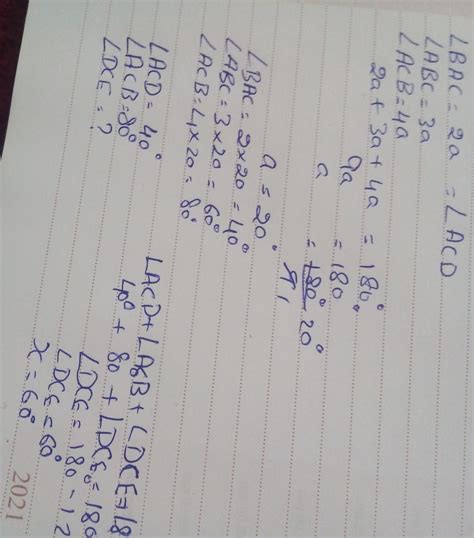 ∠BAC = 2a = ∠ACD
∠ABC = 3a
∠ACB = 4a
2a + 3a + 4a = 180°
9a = 180
a = 180° 20°
a = 20°
∠BAC = 2×20 = 40°
∠ABC = 3×20 = 60°
∠ACB = 4×20 = 80°
∠ACD = 40°
∠ACB = 80°
∠DCE = ?
∠ACD + ∠ACB + ∠DCE = 18
40° + 80 + ∠DCE = 180
∠DCE = 180 - 12
∠DCE = 60°
x = 60°
2021